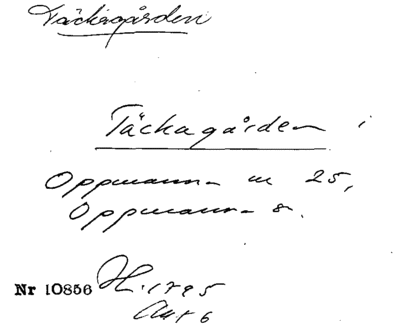 Täckagården
Täckagården i
Oppmanna nr 25,
Oppmanna s.
Nr 10856 H. 1795
Akt 6